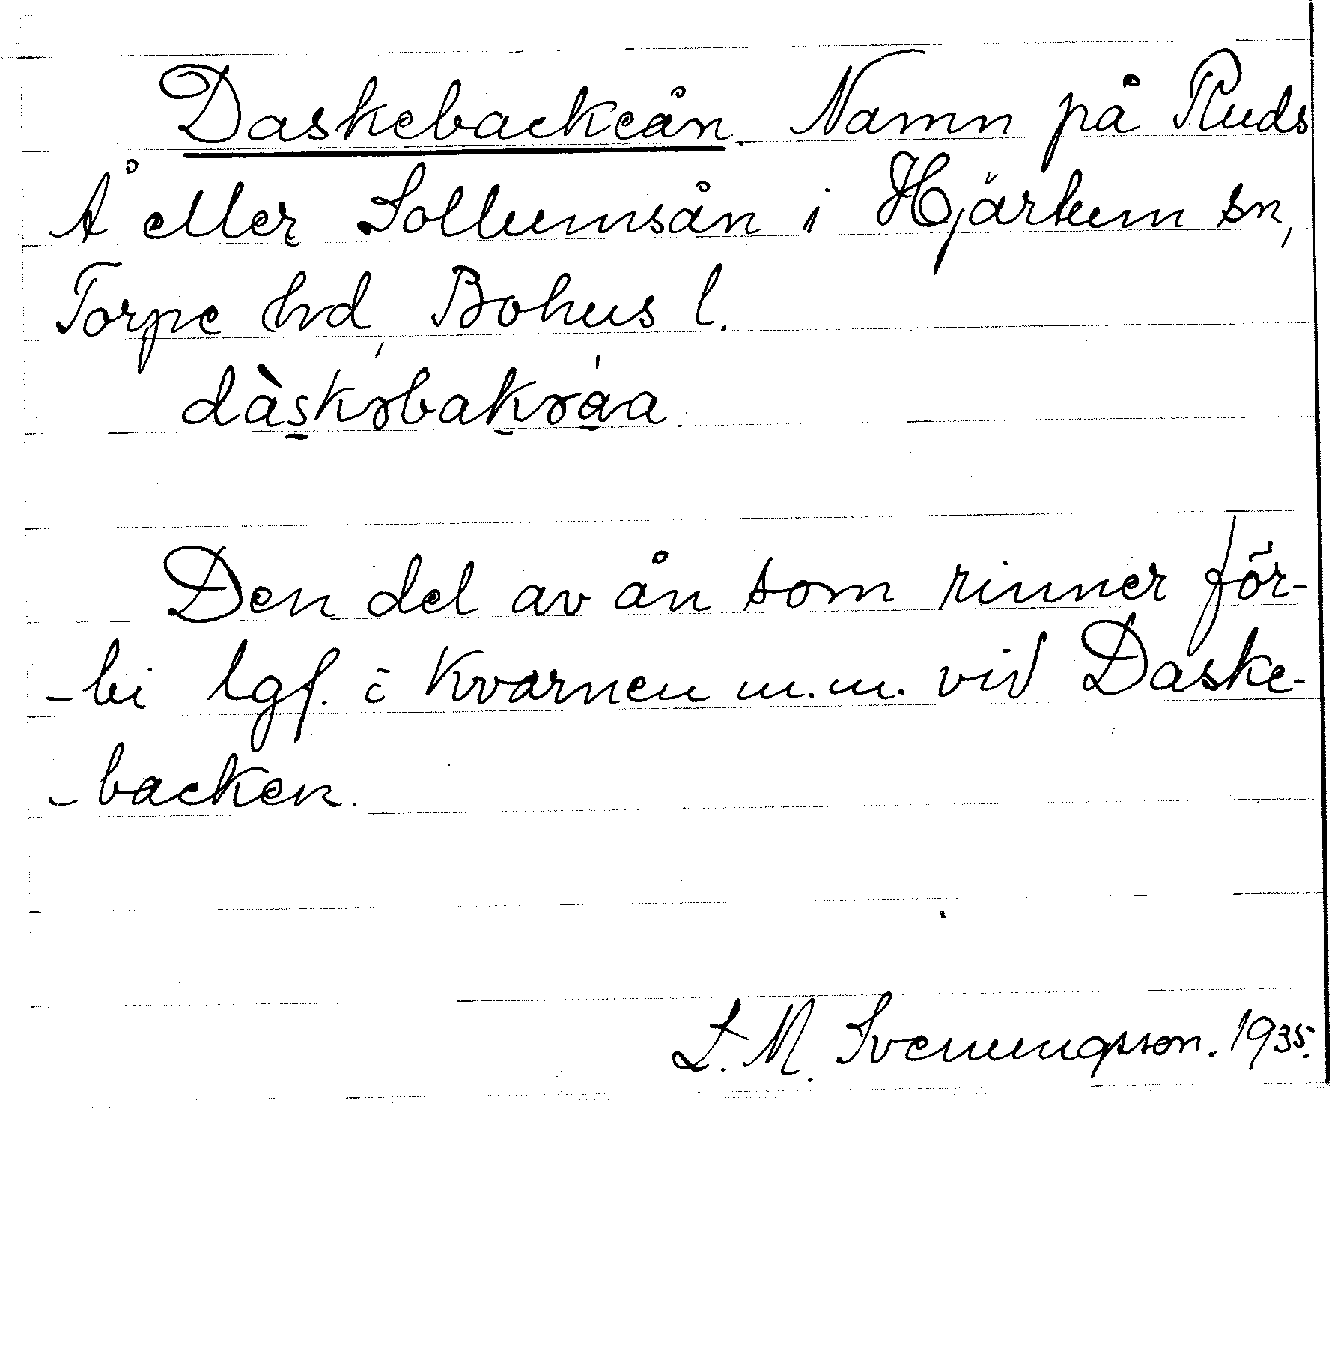 Daskebackeån. Namn på Ruds
Å eller Sollumsån i Hjärtum sn,
Torpe hd, Bohus l.
dàskəbakəåa.
Den del av ån som rinner för-
-bi lgf. i Kvarnen m.m. vid Daske-
-backen.
L. M. Svenungsson. 1935.